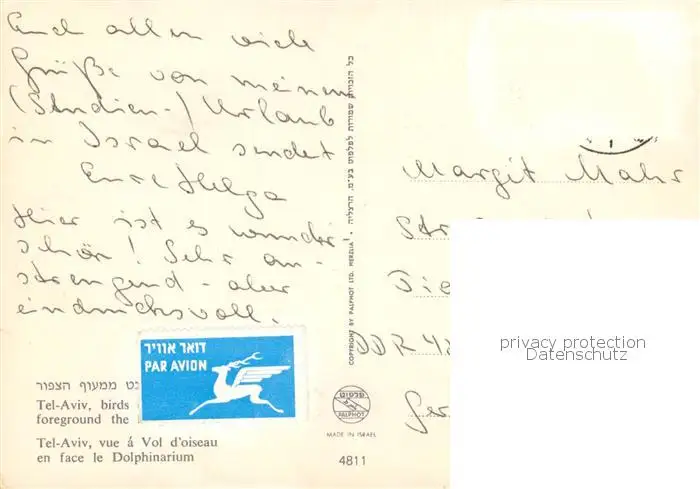 Euch allen viele
Grüße von meinem
(Studien-) Urlaub
in Israel sendet
Eure Helga
Hier ist es wunder
schön! Sehr an-
strengend - aber
eindrucksvoll.
דואר אוויר
PAR AVION
ממעוף הצפור
Tel-Aviv, birds
foreground the
Tel-Aviv, vue á Vol d'oiseau
en face le Dolphinarium
כל הזכויות שמורות לפלפוט בע"מ, הרצליה • COPYRIGHT BY PALPHOT LTD. HERZLIA
פלפוט
PALPHOT
MADE IN ISRAEL
4811
Margit Mahr
Str
DDR
Ger
privacy protection
Datenschutz